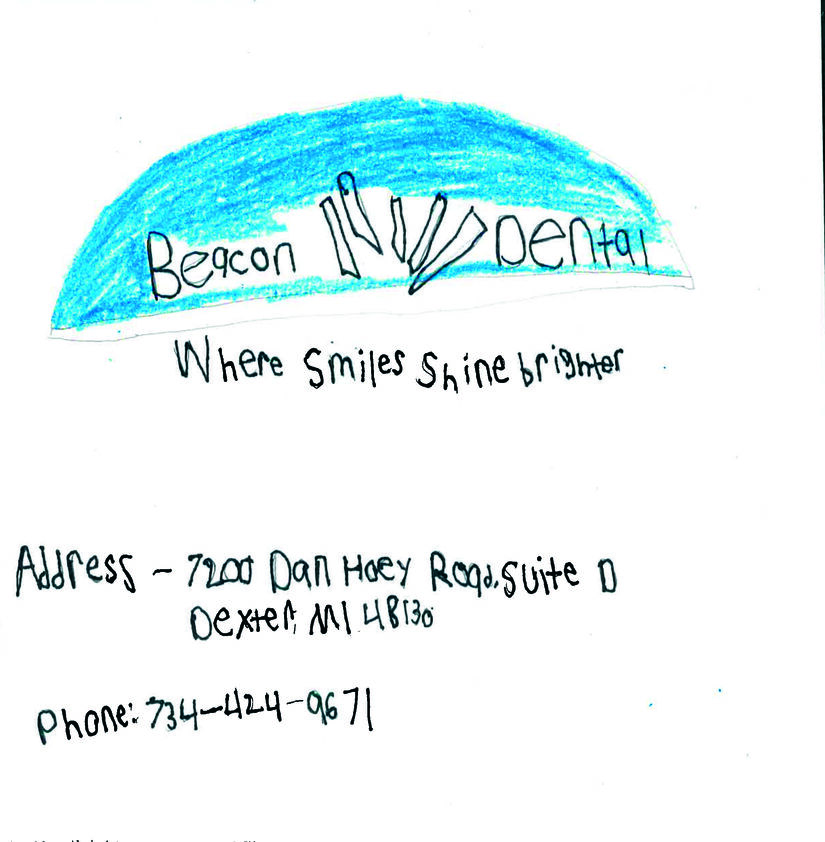 Beacon Dental
Where Smiles Shine brighter
Address - 7200 Dan Hoey Road. Suite D
Dexter, MI 48130
Phone: 734-424-9671